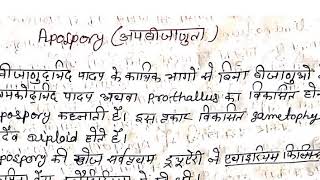 Apospory (अपबीजाणुता)
बीजाणुद्भिद पादप के कायिक भागों से बिना बीजाणुओं
युग्मकोद्भिद पादप अथवा Prothallus का विकसित होना
apospory कहलाती है। इस प्रकार विकसित gametophy
सदैव diploid होते हैं।
apospory की खोज सर्वप्रथम ड्रूऐरी ने एथाइरियम